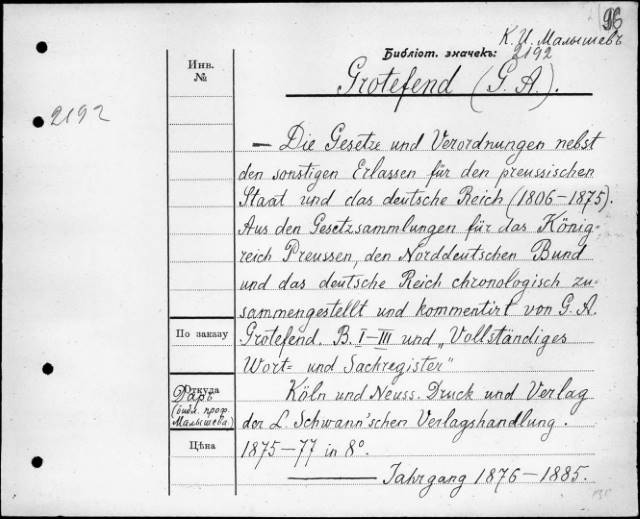 96
К. И. Малышевъ
Библіот. значекъ:
2192
Инв.
№
2192
Grotefend (G. A.).
— Die Gesetze und Verordnungen nebst
den sonstigen Erlassen für den preussischen
Staat und das deutsche Reich (1806—1875).
Aus den Gesetzsammlungen für das König-
reich Preussen, den Norddeutschen Bund
und das deutsche Reich chronologisch zu-
sammengestellt und kommentirt von G. A.
Grotefend. B. I—III und „Vollständiges
Wort= und Sachregister"
По заказу
Откуда
Даръ
(библ. проф.
Малышева)
Цѣна
Köln und Neuss. Druck und Verlag
der L. Schwann'schen Verlagshandlung.
1875—77 in 8°.
——— Jahrgang 1876—1885.